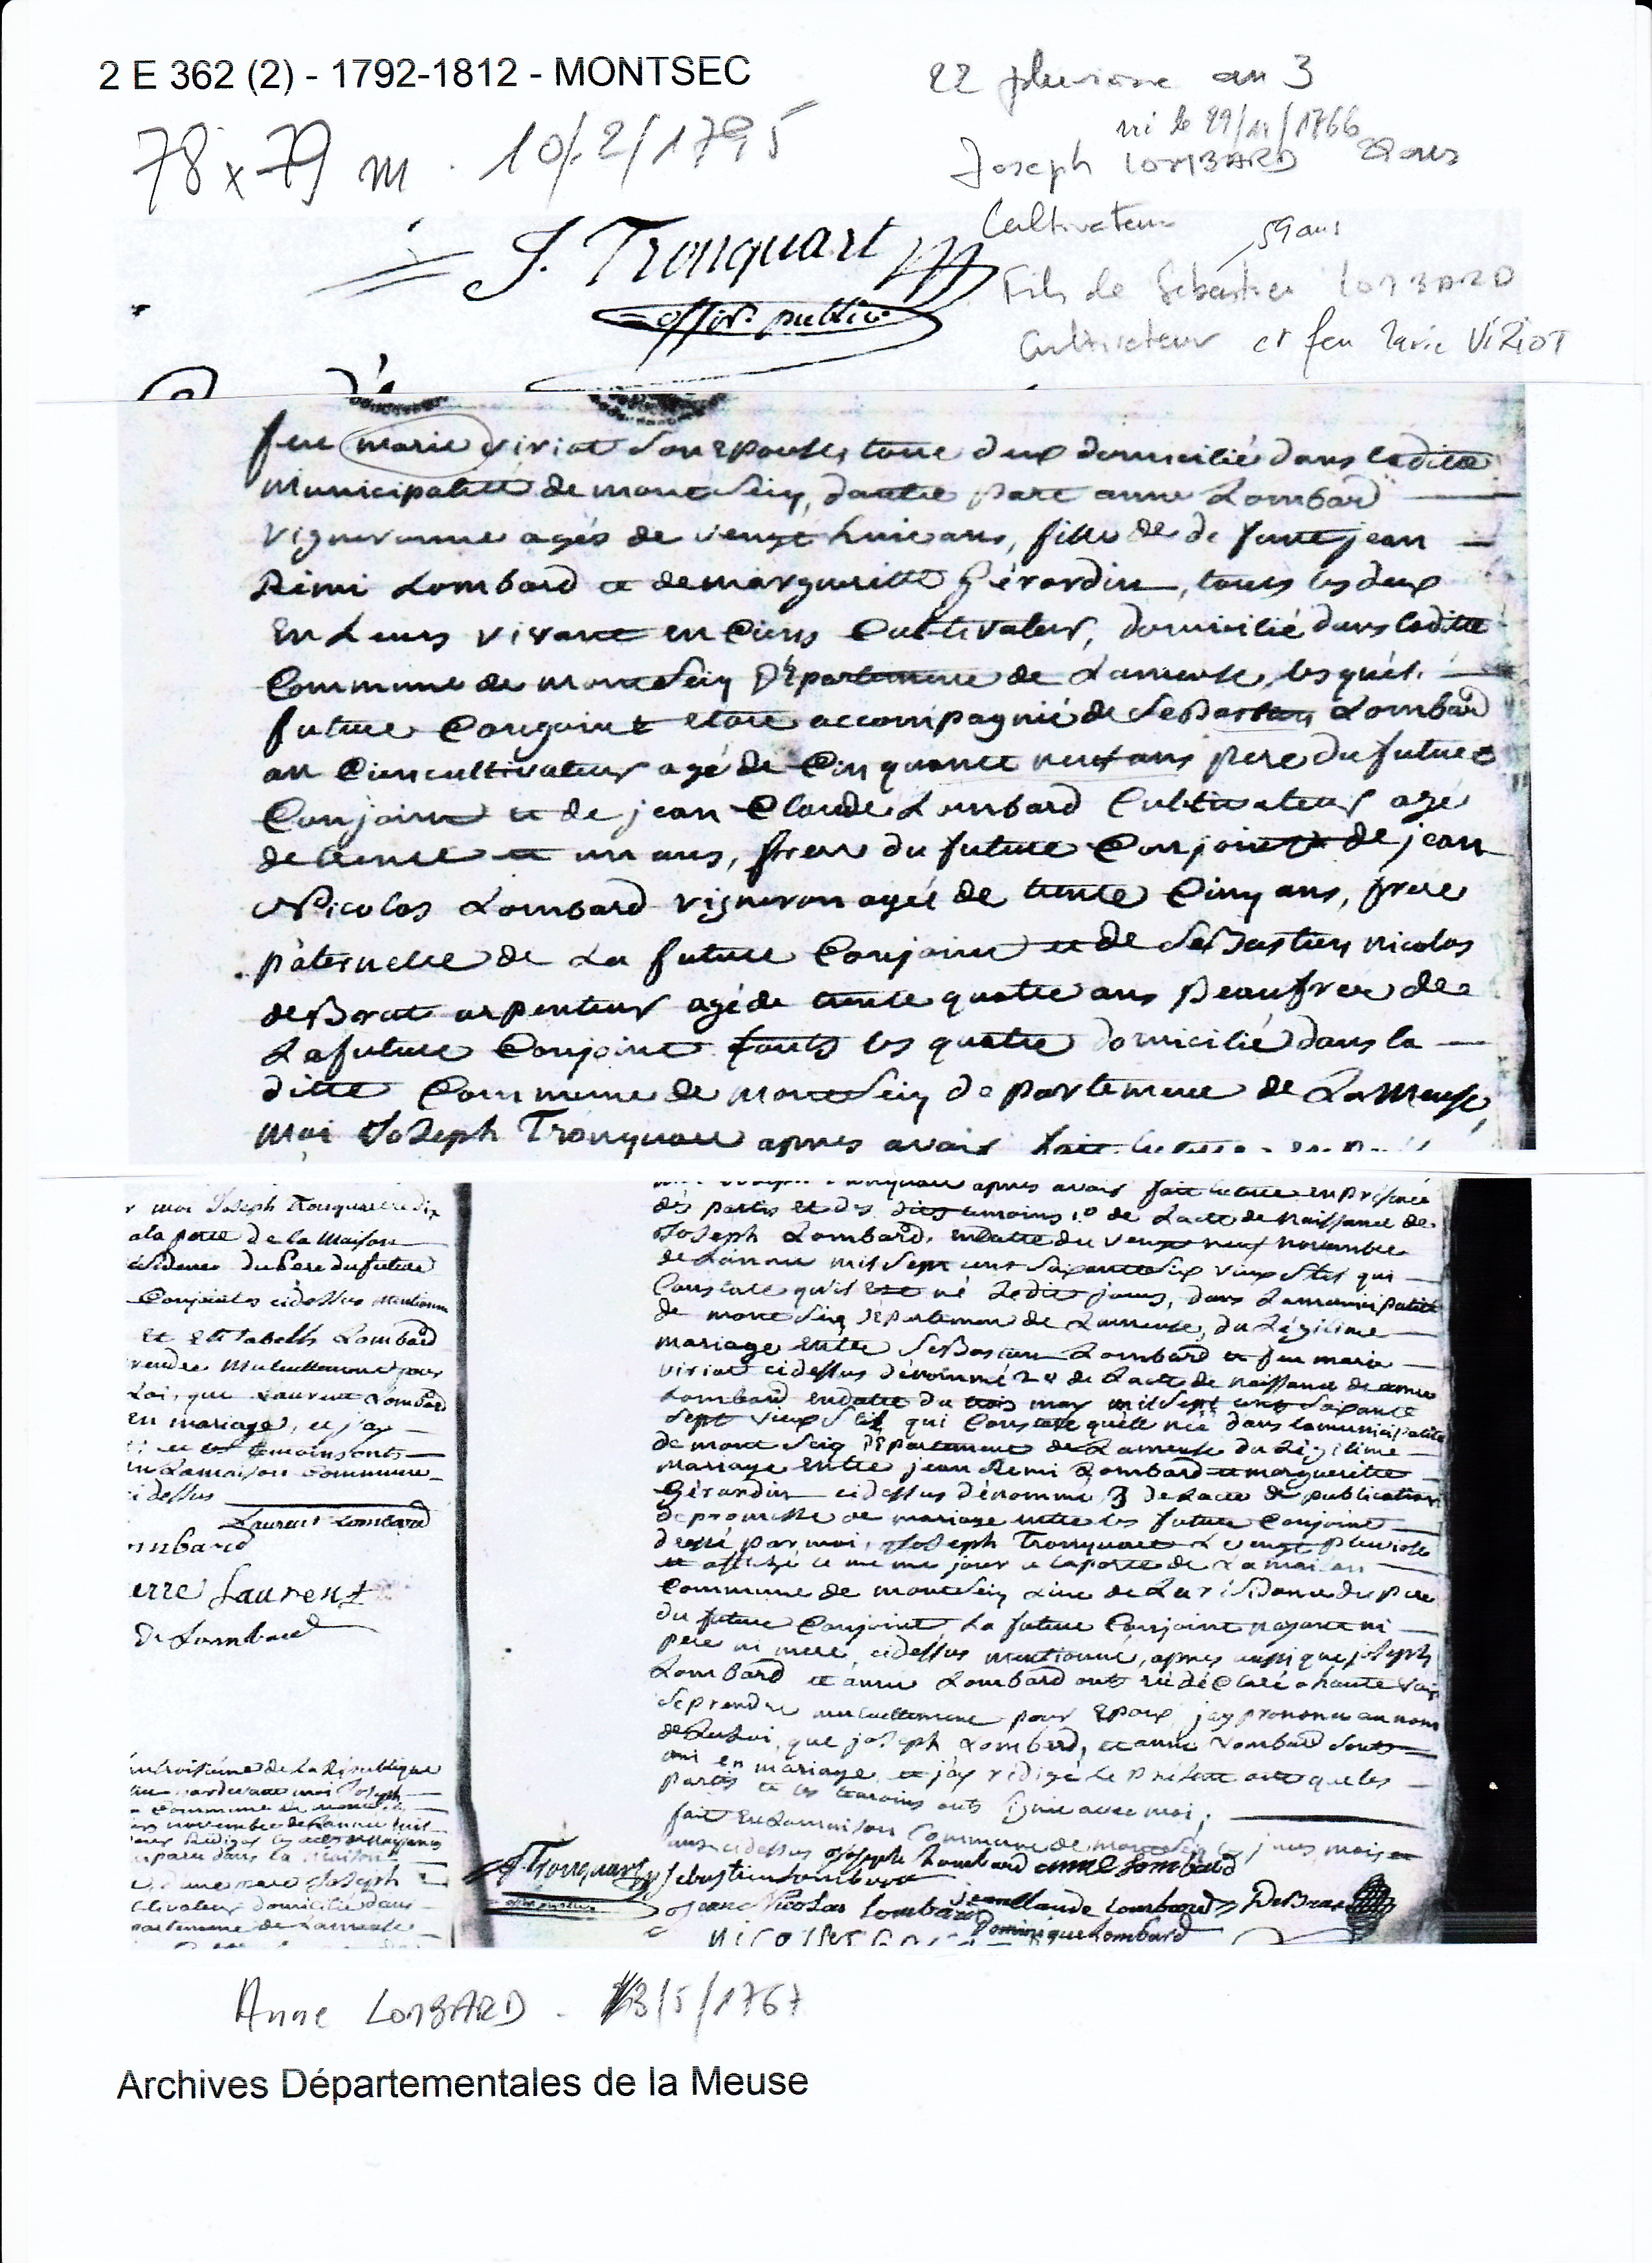 2 E 362 (2) - 1792-1812 - MONTSEC
22 pluviose an 3
78 x 79 m . 10/2/1795
né le 29/11/1766
Joseph LOMBARD 28 ans
Cultivateur
59 ans
Fils de Sébastien LOMBARD
Cultivateur et feu Marie VIRIOT
J. Tronquart
offier public
feue marie viriot son Epouse, tous deux domicilié dans laditte
Municipalité de montSeiq, dautre part anne Lombard
Vigneronne agés de vengt huit ans, fille de de funte jean
Rémi Lombard et de margueritte Gérardin, tous les deux
En Leurs vivant en Ciens Cultivateur, domicilié dans laditte
Commune de montSeiq Département de Lameuse, les quels
future Conjoint etoit accompagnié de SeBastien Lombard
an Cien cultivateur agé de Cinquante neuf ans pere du future
Conjoint et de jean Claude Lombard Cultivateur agé
de trente et un ans, frere du future Conjoint de jean
Nicolas Lombard vigneron agés de trente Cinq ans, frere
paternelle de La future Conjoint et de SeBastien nicolas
deBrat arpenteur agé de trente quatre ans Beaufrere de
Lafuture Conjoint touts les quatre domicilié dans la
ditte Commune de montSeiq departement de LaMeuse,
Moi JoSeph Tronquart apres avoir fait lecture
r moi JoSeph Tronquart
ala porte de la Maison
du Pere du future
Conjoint ci deSsus
et Elisabelh Lombard
rendre Mutuellement pour
Loi, que Laurent Lombard
En mariage, et j'ay
et les temoins onts
en Lamaison Commune
ci dessus
Laurent Lombard
mbard
erre Laurent
D. Lombard
troisième de La République
moi JoSeph
Commune de
novembre de Lannée
dans la Maison
d'une part JoSeph
ltivateur domicilié dans
partement de Lameuse
apres avoir fait lecture en Présence
des partis et des dits temoins 1º de Lacte de NaisSance de
JoSeph Lombard, en datte du vengt neuf novembre
de Lannée mil Sept cent Soixante Six vieux Stil qui
Constate qu'il Est né Ledit jours, dans Lamunicipalité
de montSeiq Département de Lameuse, du Légitime
mariage Entre SeBastien Lombard et feu marie
viriot ci deSsus dénommé 2º de Lacte de naiSsance de anne
Lombard en datte du trois may mil Sept cent Soixante
Sept vieux Stil qui Constate quelle née dans lamunicipalité
de montSeiq Département de Lameuse du Légitime
mariage Entre jean Remi Lombard et margueritte
Gérardin ci deSsus dénommé 3 de Lacte de publication
de promesse de mariage entre les future Conjoint
dressé par moi, JoSeph Tronquart Le vengt pluviose
et affiché le meme jour a laporte de Lamaison
Commune de montSeiq Lieu de La résidance du pere
du future Conjoint, La future Conjoint nayant ni
pere ni mere, ci deSsus mentionné, apres aussi que joSeph
LomBard et anne Lombard onts déClaré a haute voix
Se prendre mutuellement pour Epoux, jay prononcé au nom
de LaLoi, que joSeph Lombard, et anne Lombard Sonts
uni en mariage et j'ay rédigé Le Présent acte que les
partis et les temoins onts Signé avec moi,
fait En Lamaison Commune de montSeiq les jours mois et
ans ci dessus Joseph Lombard anne Lombard
J. Tronquart Sebastien Lombard
Jean Nicolas Lombard Jean Claude Lombard DeBrat
Dominique Lombard
Anne LOMBARD - 3/5/1767
Archives Départementales de la Meuse